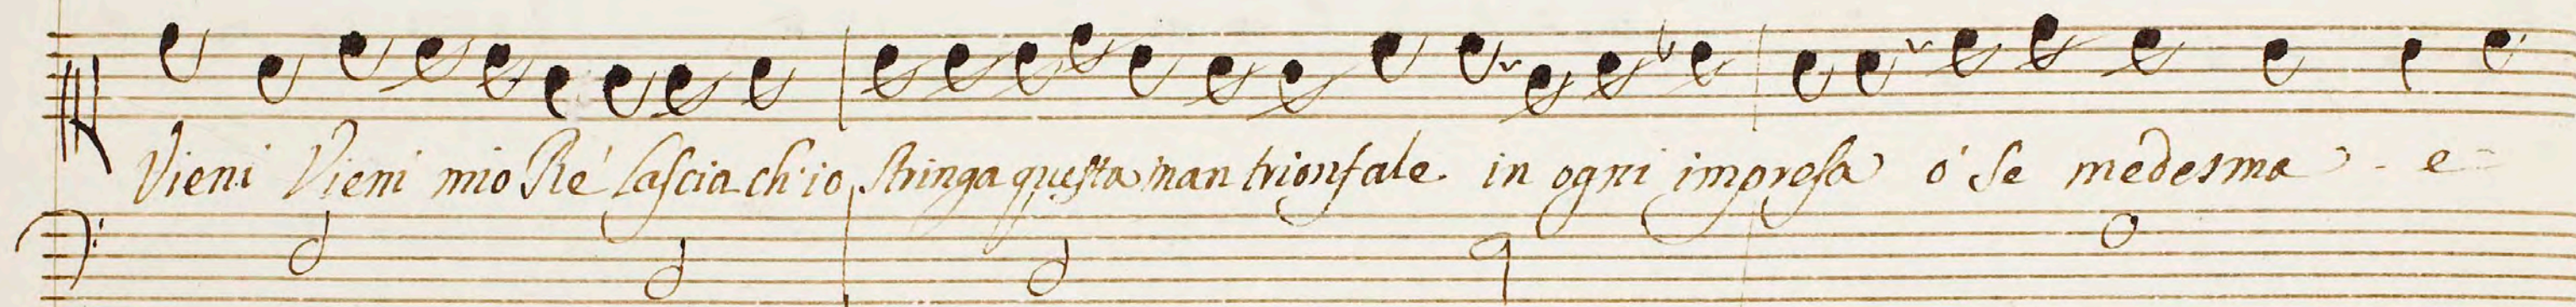 Vieni Vieni mio Rè lascia ch'io stringa questa man trionfale in ogni impresa ò se medesma e